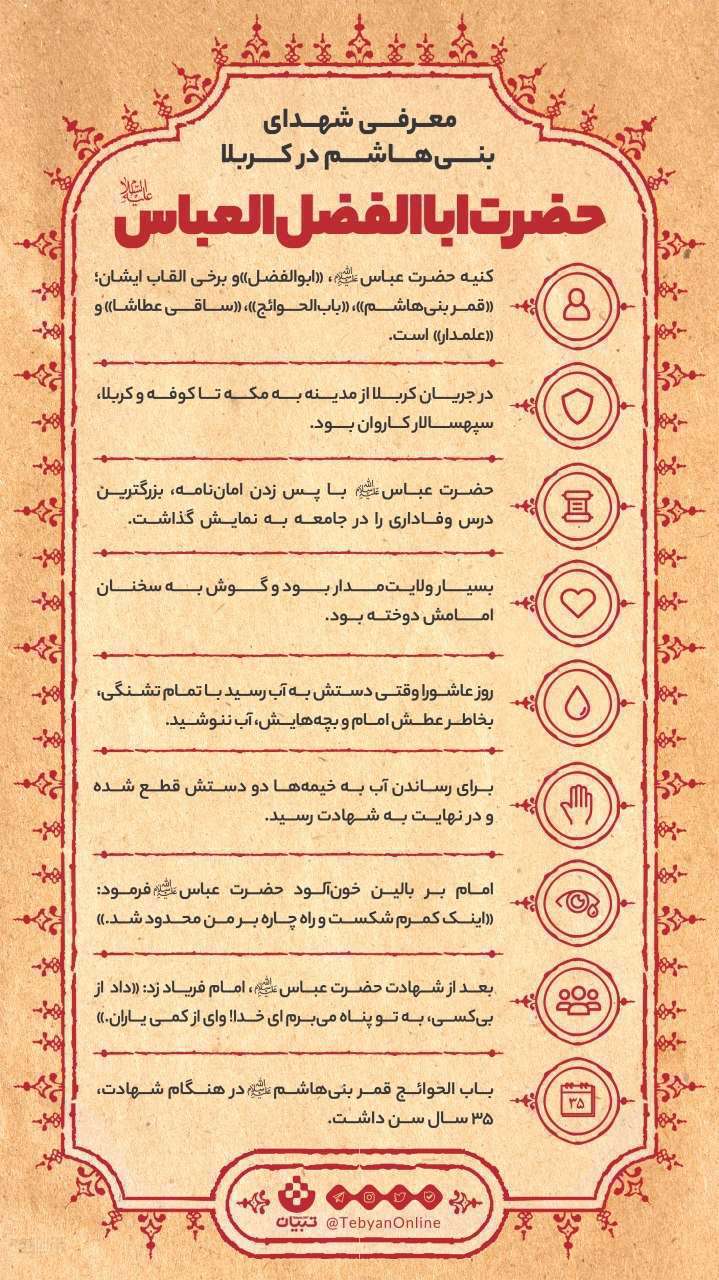 معرفی شهدای
بنی‌هاشم در کربلا
حضرت اباالفضل العباس علیه السلام
کنیه حضرت عباس علیه‌السلام، «ابوالفضل» و برخی القاب ایشان؛
«قمر بنی‌هاشم»، «باب‌الحوائج»، «ساقی عطاشا» و
«علمدار» است.
در جریان کربلا از مدینه به مکه تا کوفه و کربلا،
سپهسالار کاروان بود.
حضرت عباس علیه‌السلام با پس زدن امان‌نامه، بزرگترین
درس وفاداری را در جامعه به نمایش گذاشت.
بسیار ولایت‌مدار بود و گوش به سخنان
امامش دوخته بود.
روز عاشورا وقتی دستش به آب رسید با تمام تشنگی،
بخاطر عطش امام و بچه‌هایش، آب ننوشید.
برای رساندن آب به خیمه‌ها دو دستش قطع شده
و در نهایت به شهادت رسید.
امام بر بالین خون‌آلود حضرت عباس علیه‌السلام فرمود:
«اینک کمرم شکست و راه چاره بر من محدود شد.»
بعد از شهادت حضرت عباس علیه‌السلام، امام فریاد زد: «داد از
بی‌کسی، به تو پناه می‌برم ای خدا! وای از کمی یاران.»
باب الحوائج قمر بنی‌هاشم علیه‌السلام در هنگام شهادت،
۳۵ سال سن داشت.
۳۵
تبیان @TebyanOnline